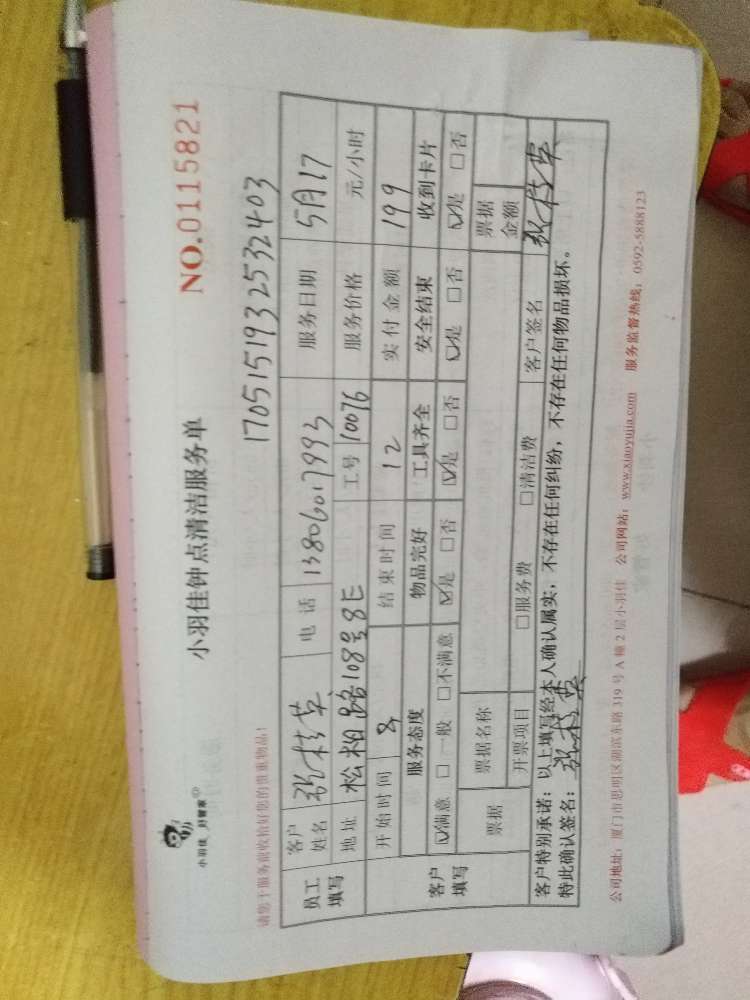 小羽佳 好管家
小羽佳钟点清洁服务单
NO.0115821
请您于服务前收拾好您的贵重物品!
1705151932532403
员工填写
客户姓名 张枝英 电话 13806017993 服务日期 5月17
地址 松柏路108号8E 工号 10076 服务价格 元/小时
开始时间 8 结束时间 12 实付金额 199
客户填写
服务态度 物品完好 工具齐全 安全结束 收到卡片
☑满意 □一般 □不满意 ☑是 □否 ☑是 □否 ☑是 □否 ☑是 □否
票据 票据名称 票据金额
开票项目 □服务费 □清洁费 客户签名 张枝英
客户特别承诺:以上填写经本人确认属实,不存在任何纠纷,不存在任何物品损坏。
特此确认签名: 张枝英
公司地址:厦门市思明区湖滨东路 319 号 A 幢 2 层小羽佳 公司网站:www.xiaoyujia.com 服务监督热线:0592-5888123